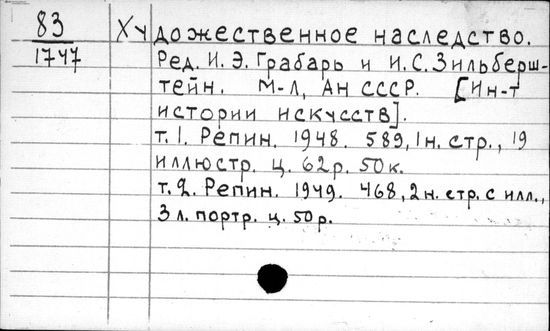 83
1747
Художественное наследство.
Ред. И. Э. Грабарь и И. С. Зильберш-
тейн. М-Л, Ан СССР. [Ин-т
истории искусств].
т. 1. Репин. 1948. 589, 1 н. стр., 19
иллюстр. ц. 62 р. 50 к.
т. 2. Репин. 1949. 468, 2 н. стр. с илл.,
3 л. портр. ц. 50 р.